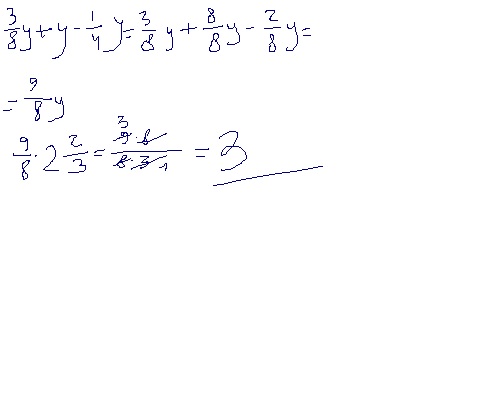 3/8 y + y - 1/4 y = 3/8 y + 8/8 y - 2/8 y =
= 9/8 y
9/8 · 2 2/3 = 3 9·8 / 8·3 1 = 3